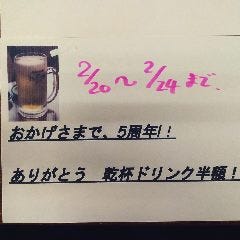 2/20〜2/24まで、
おかげさまで、5周年!!
ありがとう　乾杯ドリンク半額!